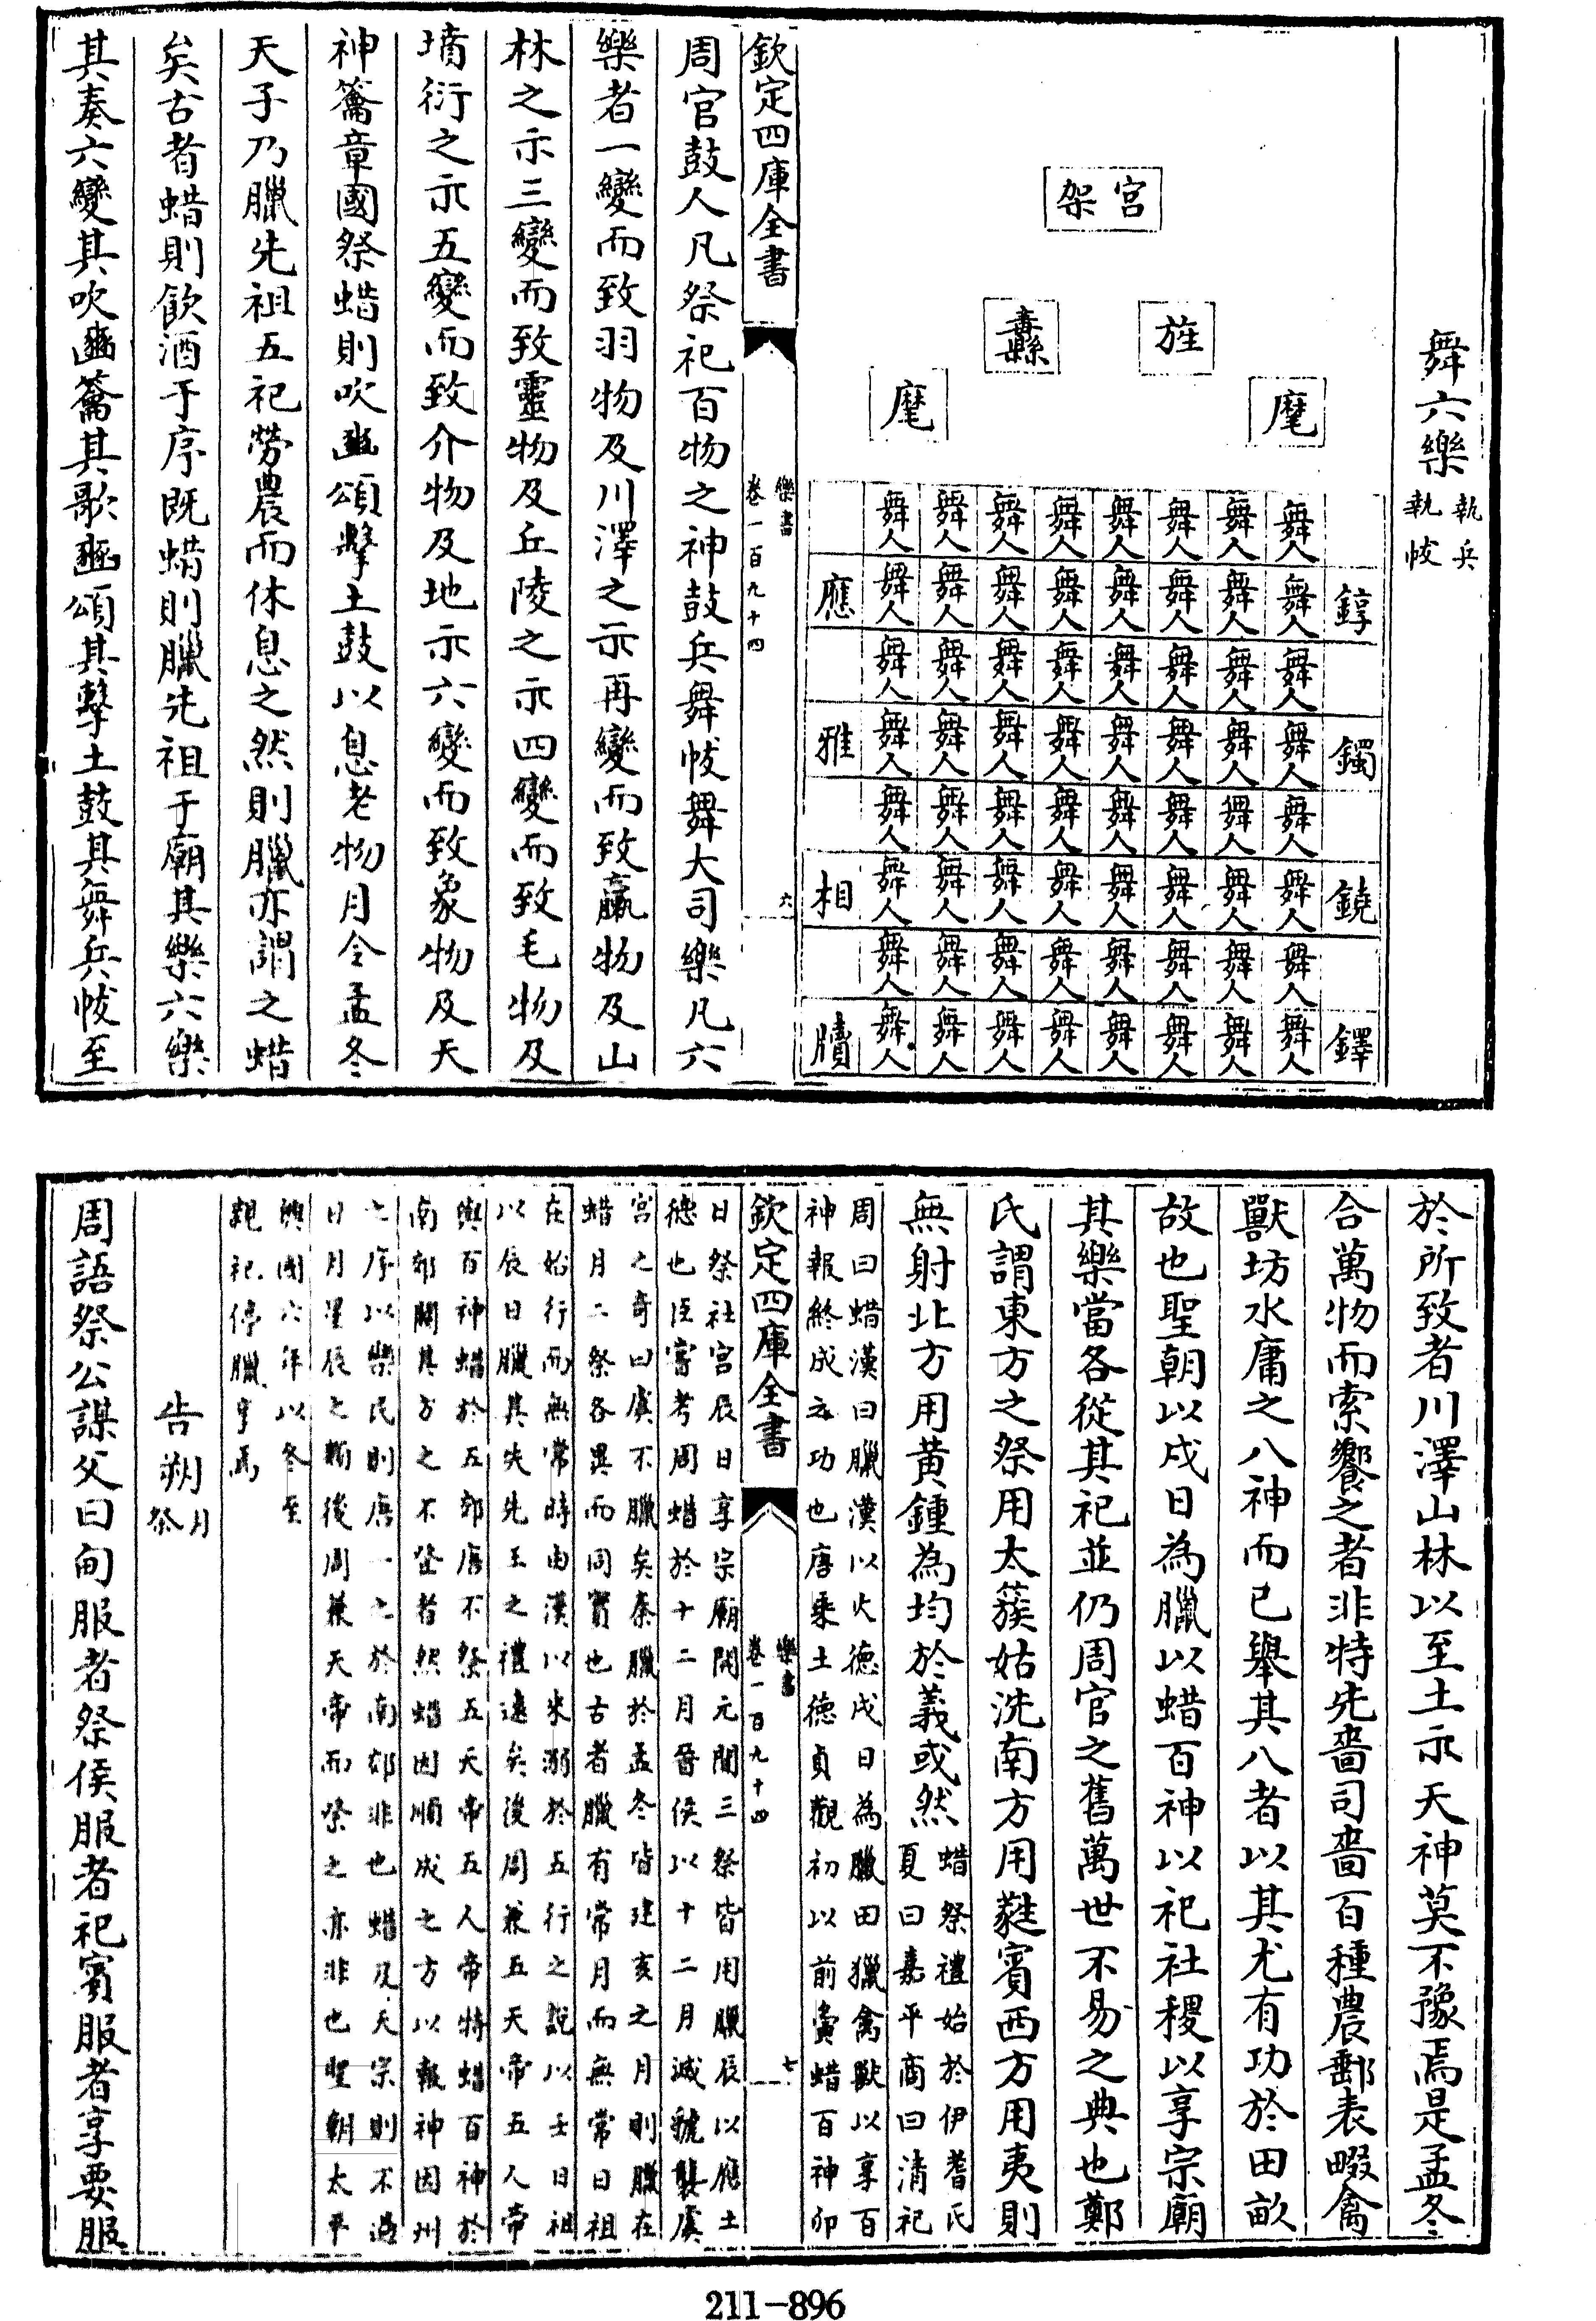 舞六樂執兵執帗
宮架
旌
纛
麾
麾
錞
鐲
鐃
鐸
舞人舞人舞人舞人舞人舞人舞人舞人
舞人舞人舞人舞人舞人舞人舞人舞人
舞人舞人舞人舞人舞人舞人舞人舞人
舞人舞人舞人舞人舞人舞人舞人舞人
舞人舞人舞人舞人舞人舞人舞人舞人
舞人舞人舞人舞人舞人舞人舞人舞人
舞人舞人舞人舞人舞人舞人舞人舞人
舞人舞人舞人舞人舞人舞人舞人舞人
應
雅
相
牘
欽定四庫全書
樂書
卷一百九十四
六
周官鼓人凡祭祀百物之神鼓兵舞帗舞大司樂凡六
樂者一變而致羽物及川澤之示再變而致臝物及山
林之示三變而致靈物及丘陵之示四變而致毛物及
墳衍之示五變而致介物及地示六變而致象物及天
神籥章國祭蜡則吹豳頌擊土鼓以息老物月令孟冬
天子乃臘先祖五祀勞農而休息之然則臘亦謂之蜡
矣古者蜡則飲酒于序既蜡則臘先祖于廟其樂六樂
其奏六變其吹豳籥其歌豳頌其擊土鼓其舞兵帗至
於所致者川澤山林以至土示天神莫不豫焉是孟冬
合萬物而索饗之者非特先嗇司嗇百種農郵表畷禽
獸坊水庸之八神而已舉其八者以其尤有功於田畝
故也聖朝以戌日為臘以蜡百神以祀社稷以享宗廟
其樂當各從其祀並仍周官之舊萬世不易之典也鄭
氏謂東方之祭用太簇姑洗南方用蕤賓西方用夷則
無射北方用黃鍾為均於義或然蜡祭禮始於伊耆氏
夏曰嘉平商曰清祀
周曰蜡漢曰臘漢以火德戌日為臘田獵禽獸以享百
神報終成之功也唐乘土德貞觀初以前寅蜡百神卯
欽定四庫全書
樂書
卷一百九十四
七
日祭社宮辰日享宗廟開元間三祭皆用臘辰以應土
德也臣嘗考周蜡於十二月晉侯以十二月滅虢襲虞
宮之奇曰虞不臘矣秦臘於孟冬皆建亥之月則臘在
蜡月二祭各異而同實也古者臘有常月而無常日祖
在始行而無常時由漢以來溺於五行之說以壬日祖
以辰日臘其失先王之禮遠矣後周兼五天帝五人帝
與百神蜡於五郊唐不祭五天帝五人帝特蜡百神於
南郊闕其方之不登者然蜡因順成之方以報神因州
之序以樂民則唐一之於南郊非也蜡及天宗則不過
日月星辰之類後周兼天帝而祭之亦非也聖朝太平
興國六年以冬至
親祀停臘享焉
告朔月祭
周語祭公謀父曰甸服者祭侯服者祀賓服者享要服
211-896